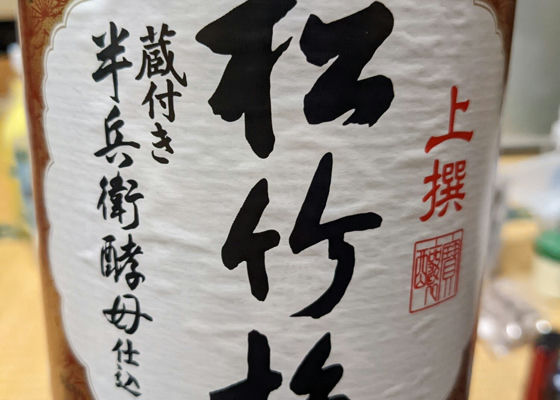 上撰
松竹梅
蔵付き
半兵衛酵母仕込